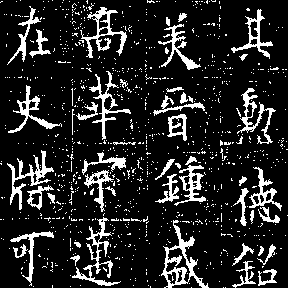 其勲德銘
美晉鍾盛
高華宇邁
在史牒可